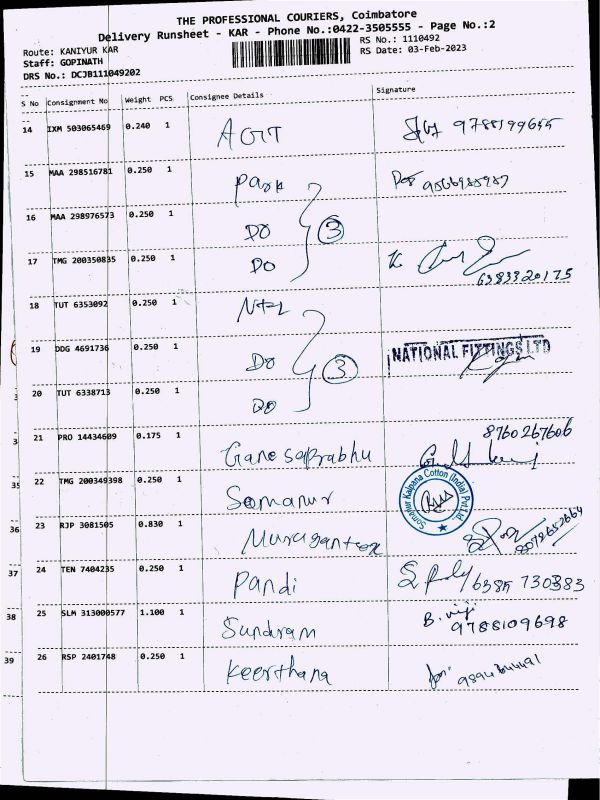 THE PROFESSIONAL COURIERS, Coimbatore
Delivery Runsheet - KAR - Phone No.:0422-3505555 - Page No.:2
Route: KANIYUR KAR
RS No.: 1110492
Staff: GOPINATH
RS Date: 03-Feb-2023
DRS No.: DCJB111049202
S No Consignment No Weight PCS Consignee Details Signature
14 IXM 503065469 0.240 1
15 MAA 298516781 0.250 1 Park
16 MAA 298976573 0.250 1 DO 3
17 TMG 200350835 0.250 1 DO
6383320175
18 TUT 6353092 0.250 1
19 DDG 4691736 0.250 1 DO 3 NATIONAL FITTINGS LTD
20 TUT 6338713 0.250 1 DO
21 PRO 14434609 0.175 1 Ganesaprabhu 8760267606
22 TMG 200349398 0.250 1 Somanur Somanur Kalpana Cotton (India) Pvt.Ltd
36 23 RJP 3081505 0.830 1
37 24 TEN 7404235 0.250 1 Pandi 6385 730383
38 25 SLM 313000577 1.100 1 Sundram B. viji 9788109698
39 26 RSP 2401748 0.250 1 Keerthana